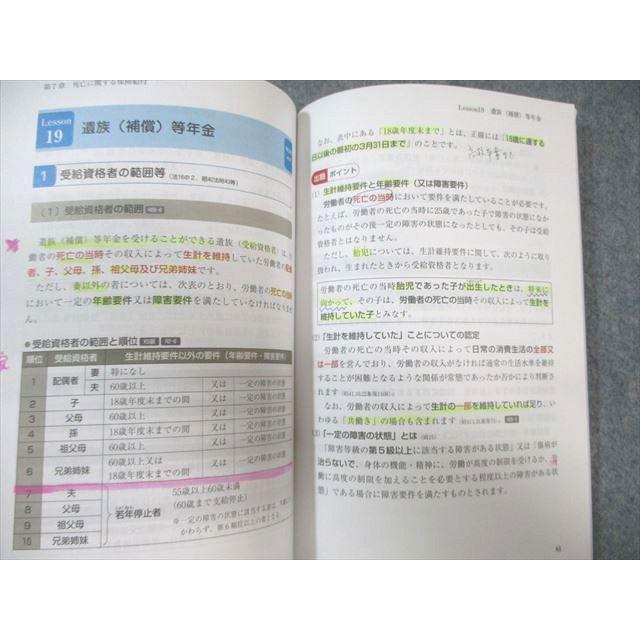 第7章 死亡に関する保険給付
Lesson
19
遺族（補償）等年金
1 受給資格者の範囲等（法16の2、昭40法附43等）
（1）受給資格者の範囲
遺族（補償）等年金を受けることができる遺族（受給資格者）は、
の死亡の当時その収入によって生計を維持していた労働者の
者、子、父母、孫、祖父母及び兄弟姉妹です。
ただし、妻以外の者については、次表のとおり、労働者の死亡の当時
において一定の年齢要件又は障害要件を満たしていなければなりませ
ん。
●受給資格者の範囲と順位
順位 受給資格者 生計維持要件以外の要件（年齢要件・障害要件）
1 配偶者 妻 特になし
夫 60歳以上 又は 一定の障害の状態
2 子 18歳年度末までの間 又は 一定の障害の状態
3 父母 60歳以上 又は 一定の障害の状態
4 孫 18歳年度末までの間 又は 一定の障害の状態
5 祖父母 60歳以上 又は 一定の障害の状態
6 兄弟姉妹 60歳以上又は
18歳年度末までの間 又は 一定の障害の状態
7 夫 若年停止者 55歳以上60歳未満
8 父母 （60歳まで支給停止）
9 祖父母 ※一定の障害の状態に該当する者は、
10 兄弟姉妹 かわらず、第6順位以上の者となる。
Lesson19 遺族（補償）等年金
なお、表中にある「18歳年度末まで」とは、正確には「18歳に達する
日以後の最初の3月31日まで」のことです。
出題 ポイント
（1）生計維持要件と年齢要件（又は障害要件）
労働者の死亡の当時において要件を満たしていることが必要です。
たとえば、労働者の死亡の当時に25歳であった子で障害の状態になか
ったものがその後一定の障害の状態になったとしても、その子は受給
資格者とはなりません。
ただし、胎児については、生計維持要件に関して、次のように取り
扱われ、生まれたときから受給資格者となります。
労働者の死亡の当時胎児であった子が出生したときは、将来に
向かって、その子は、労働者の死亡の当時その収入によって生計を
維持していた子とみなす。
（2）「生計を維持していた」ことについての認定
労働者の死亡の当時その収入によって日常の消費生活の全部又
は一部を営んでおり、死亡がなければ通常の生活水準を維持
することが困難となるような関係が常態であったか否かにより判断され
ます
なお、労働者の収入によって生計の一部を維持していれば足り、い
わゆる「共働き」の場合も含まれます
（3）「一定の障害の状態」とは
「障害等級の第5級以上に該当する障害がある状態」又は「傷病が
治らないで、身体の機能・精神に、労働が高度の制限を受けるか、
働に高度の制限を加えることを必要とする程度以上の障害がある状
態」である場合に障害要件を満たすものとされます。